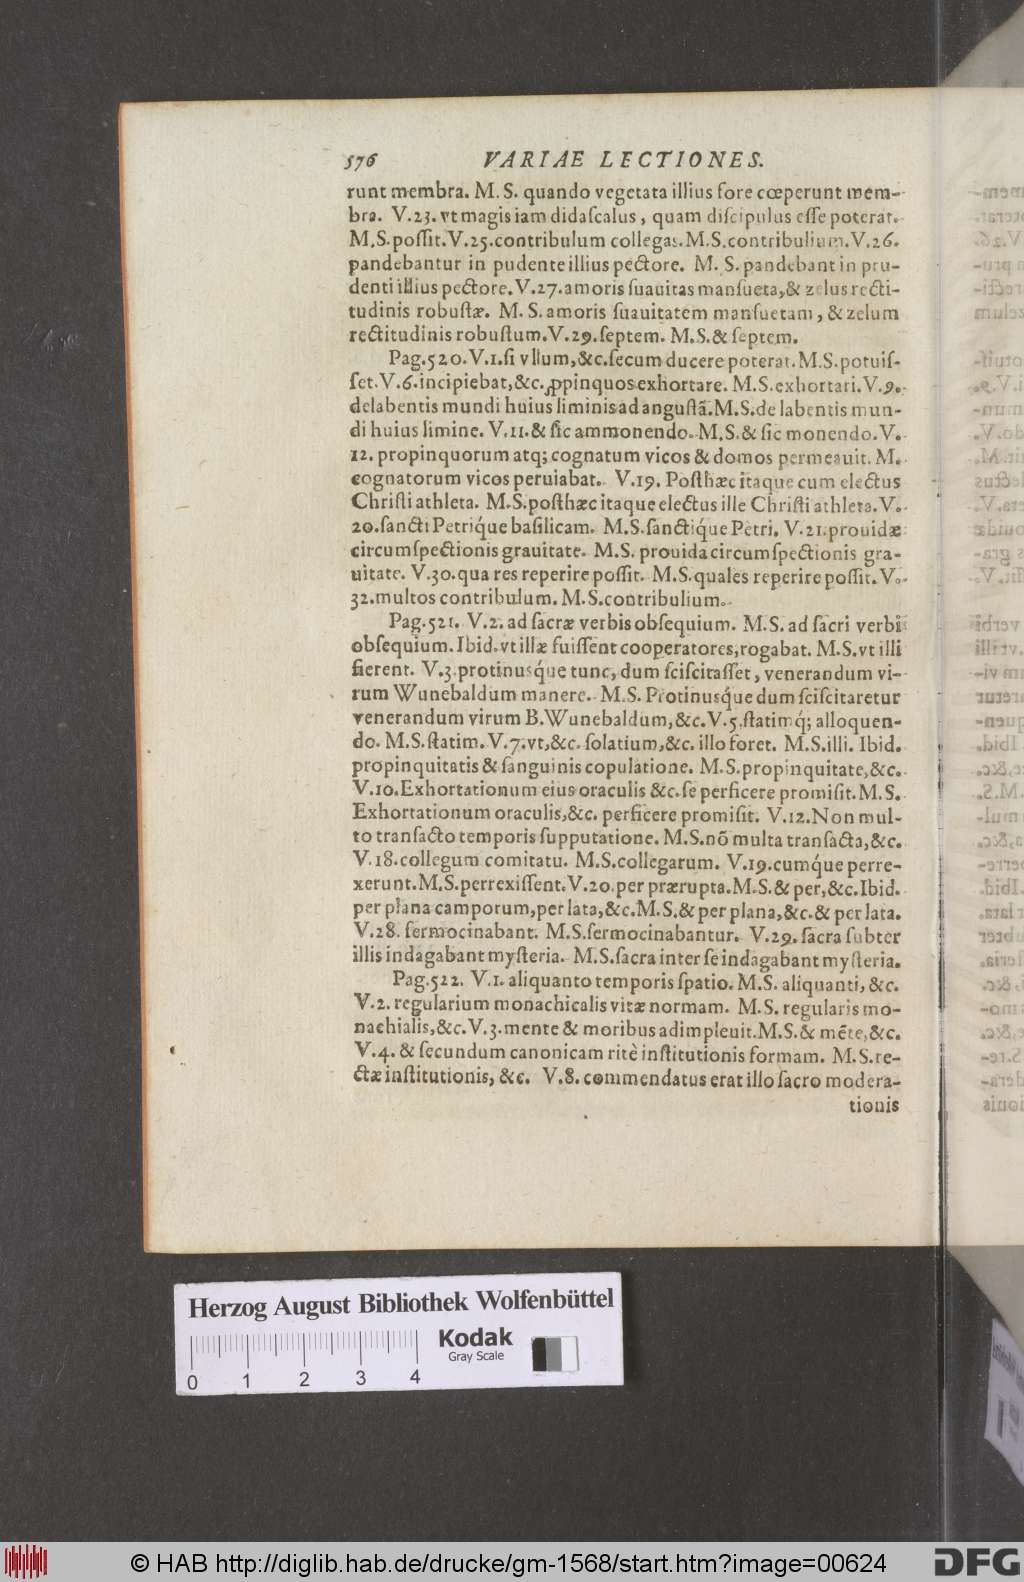 576 VARIAE LECTIONES.
runt membra. M. S. quando vegetata illius fore cœperunt mem-
bra. V.23. vt magis iam didaſcalus, quam diſcipulus eſſe poterat.
M.S. poſſit. V.25. contribulum collegas. M.S. contribulium. V.26.
pandebantur in pudente illius pectore. M. S. pandebant in pru-
denti illius pectore. V.27. amoris ſuauitas manſueta, & zelus recti-
tudinis robuſtæ. M. S. amoris ſuauitatem manſuetam, & zelum
rectitudinis robuſtum. V.29. ſeptem. M.S. & ſeptem.
Pag.520. V.1. ſi vllum, &c. ſecum ducere poterat. M.S. potuiſ-
ſet. V.6. incipiebat, &c. ꝓpinquos exhortare. M.S. exhortari. V.9.
delabentis mundi huius liminis ad anguſtã. M.S. de labentis mun-
di huius limine. V.11. & ſic ammonendo. M.S. & ſic monendo. V.
12. propinquorum atq; cognatum vicos & domos permeauit. M.
cognatorum vicos peruiabat. V.19. Poſthæc itaque cum electus
Chriſti athleta. M.S. poſthæc itaque electus ille Chriſti athleta. V.
20. ſancti Petriq́ue baſilicam. M.S. ſanctiq́ue Petri. V.21. prouidæ
circumſpectionis grauitate. M.S. prouida circumſpectionis gra-
uitate. V.30. qua res reperire poſſit. M.S. quales reperire poſſit. V.
32. multos contribulum. M.S. contribulium.
Pag.521. V.2. ad ſacræ verbis obſequium. M.S. ad ſacri verbi
obſequium. Ibid. vt illæ fuiſſent cooperatores, rogabat. M.S. vt illi
fierent. V.3. protinusq́ue tunc, dum ſciſcitaſſet, venerandum vi-
rum Wunebaldum manere. M.S. Protinusq́ue dum ſciſcitaretur
venerandum virum B. Wunebaldum, &c. V.5. ſtatimq́; alloquen-
do. M.S. ſtatim. V.7. vt, &c. ſolatium, &c. illo foret. M.S. illi. Ibid.
propinquitatis & ſanguinis copulatione. M.S. propinquitate, &c.
V.10. Exhortationum eius oraculis &c. ſe perficere promiſit. M.S.
Exhortationum oraculis, &c. perficere promiſit. V.12. Non mul-
to tranſacto temporis ſupputatione. M.S. nõ multa tranſacta, &c.
V.18. collegum comitatu. M.S. collegarum. V.19. cumq́ue perre-
xerunt. M.S. perrexiſſent. V.20. per prærupta. M.S. & per, &c. Ibid.
per plana camporum, per lata, &c. M.S. & per plana, &c. & per lata.
V.28. ſermocinabant. M.S. ſermocinabantur. V.29. ſacra ſubter
illis indagabant myſteria. M.S. ſacra inter ſe indagabant myſteria.
Pag.522. V.1. aliquanto temporis ſpatio. M.S. aliquanti, &c.
V.2. regularium monachicalis vitæ normam. M.S. regularis mo-
nachialis, &c. V.3. mente & moribus adimpleuit. M.S. & mẽte, &c.
V.4. & ſecundum canonicam ritè inſtitutionis formam. M.S. re-
ctæ inſtitutionis, &c. V.8. commendatus erat illo ſacro modera-
tionis
Herzog August Bibliothek Wolfenbüttel
Kodak
Gray Scale
0 1 2 3 4
© HAB http://diglib.hab.de/drucke/gm-1568/start.htm?image=00624
DFG